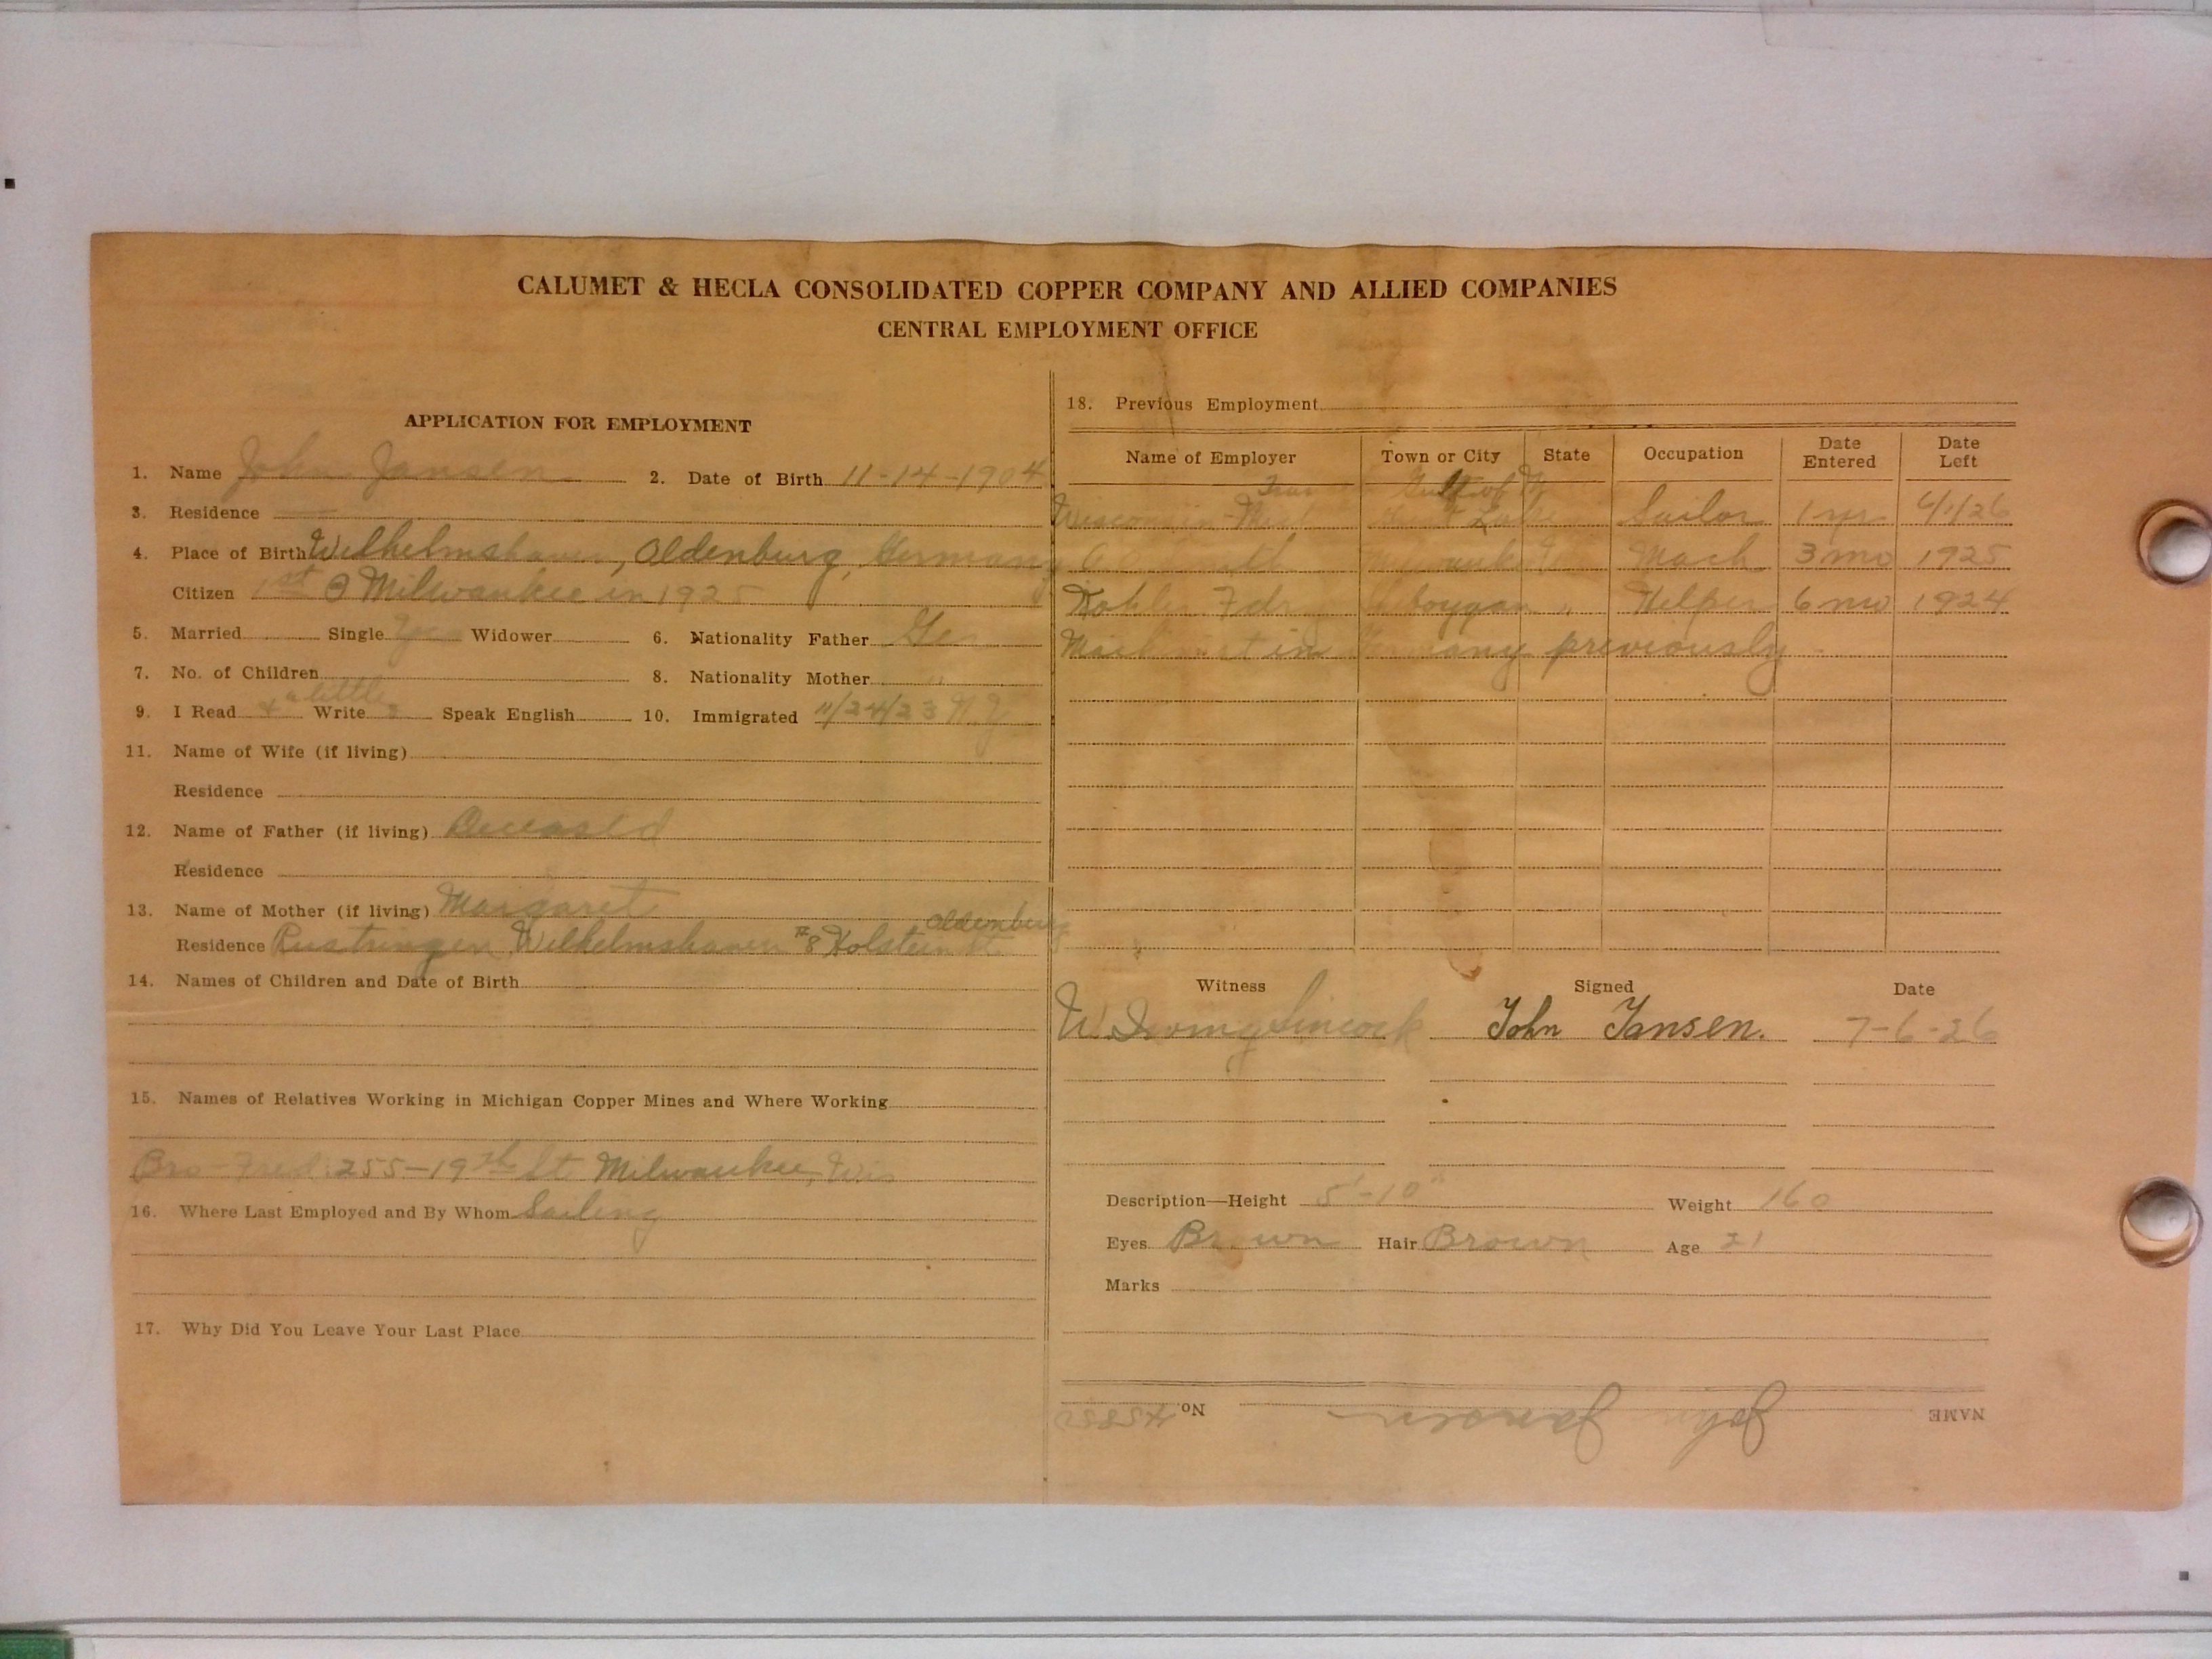 CALUMET & HECLA CONSOLIDATED COPPER COMPANY AND ALLIED COMPANIES
CENTRAL EMPLOYMENT OFFICE
APPLICATION FOR EMPLOYMENT
1. Name John Jansen 2. Date of Birth 11-14-1904
3. Residence
4. Place of Birth Wilhelmshaven, Oldenburg, Germany
Citizen 1st Milwaukee in 1925
5. Married Single Yes Widower 6. Nationality Father Ger
7. No. of Children 8. Nationality Mother "
a little
9. I Read Write Speak English 10. Immigrated 11/24/23 N.Y.
11. Name of Wife (if living)
Residence
12. Name of Father (if living) Deceas'd
Residence
13. Name of Mother (if living) Margaret
Oldenburg
Residence Rustringen Wilhelmshaven #8 Holstein St.
14. Names of Children and Date of Birth
15. Names of Relatives Working in Michigan Copper Mines and Where Working
Bro - Fred. 255-19th St. Milwaukee, Wis
16. Where Last Employed and By Whom Sailing
17. Why Did You Leave Your Last Place
18. Previous Employment
Name of Employer Town or City State Occupation Date Entered Date Left
Wisconsin Sailor 1 yr 6/1/26
Mach 3 mo 1925
Kohler " Helper 6 mo 1924
in Germany previously
Witness Signed Date
W. Irving John Jansen. 7-6-26
Description—Height 5'-10" Weight 160
Eyes Brown Hair Brown Age 21
Marks
NAME John Jansen No.